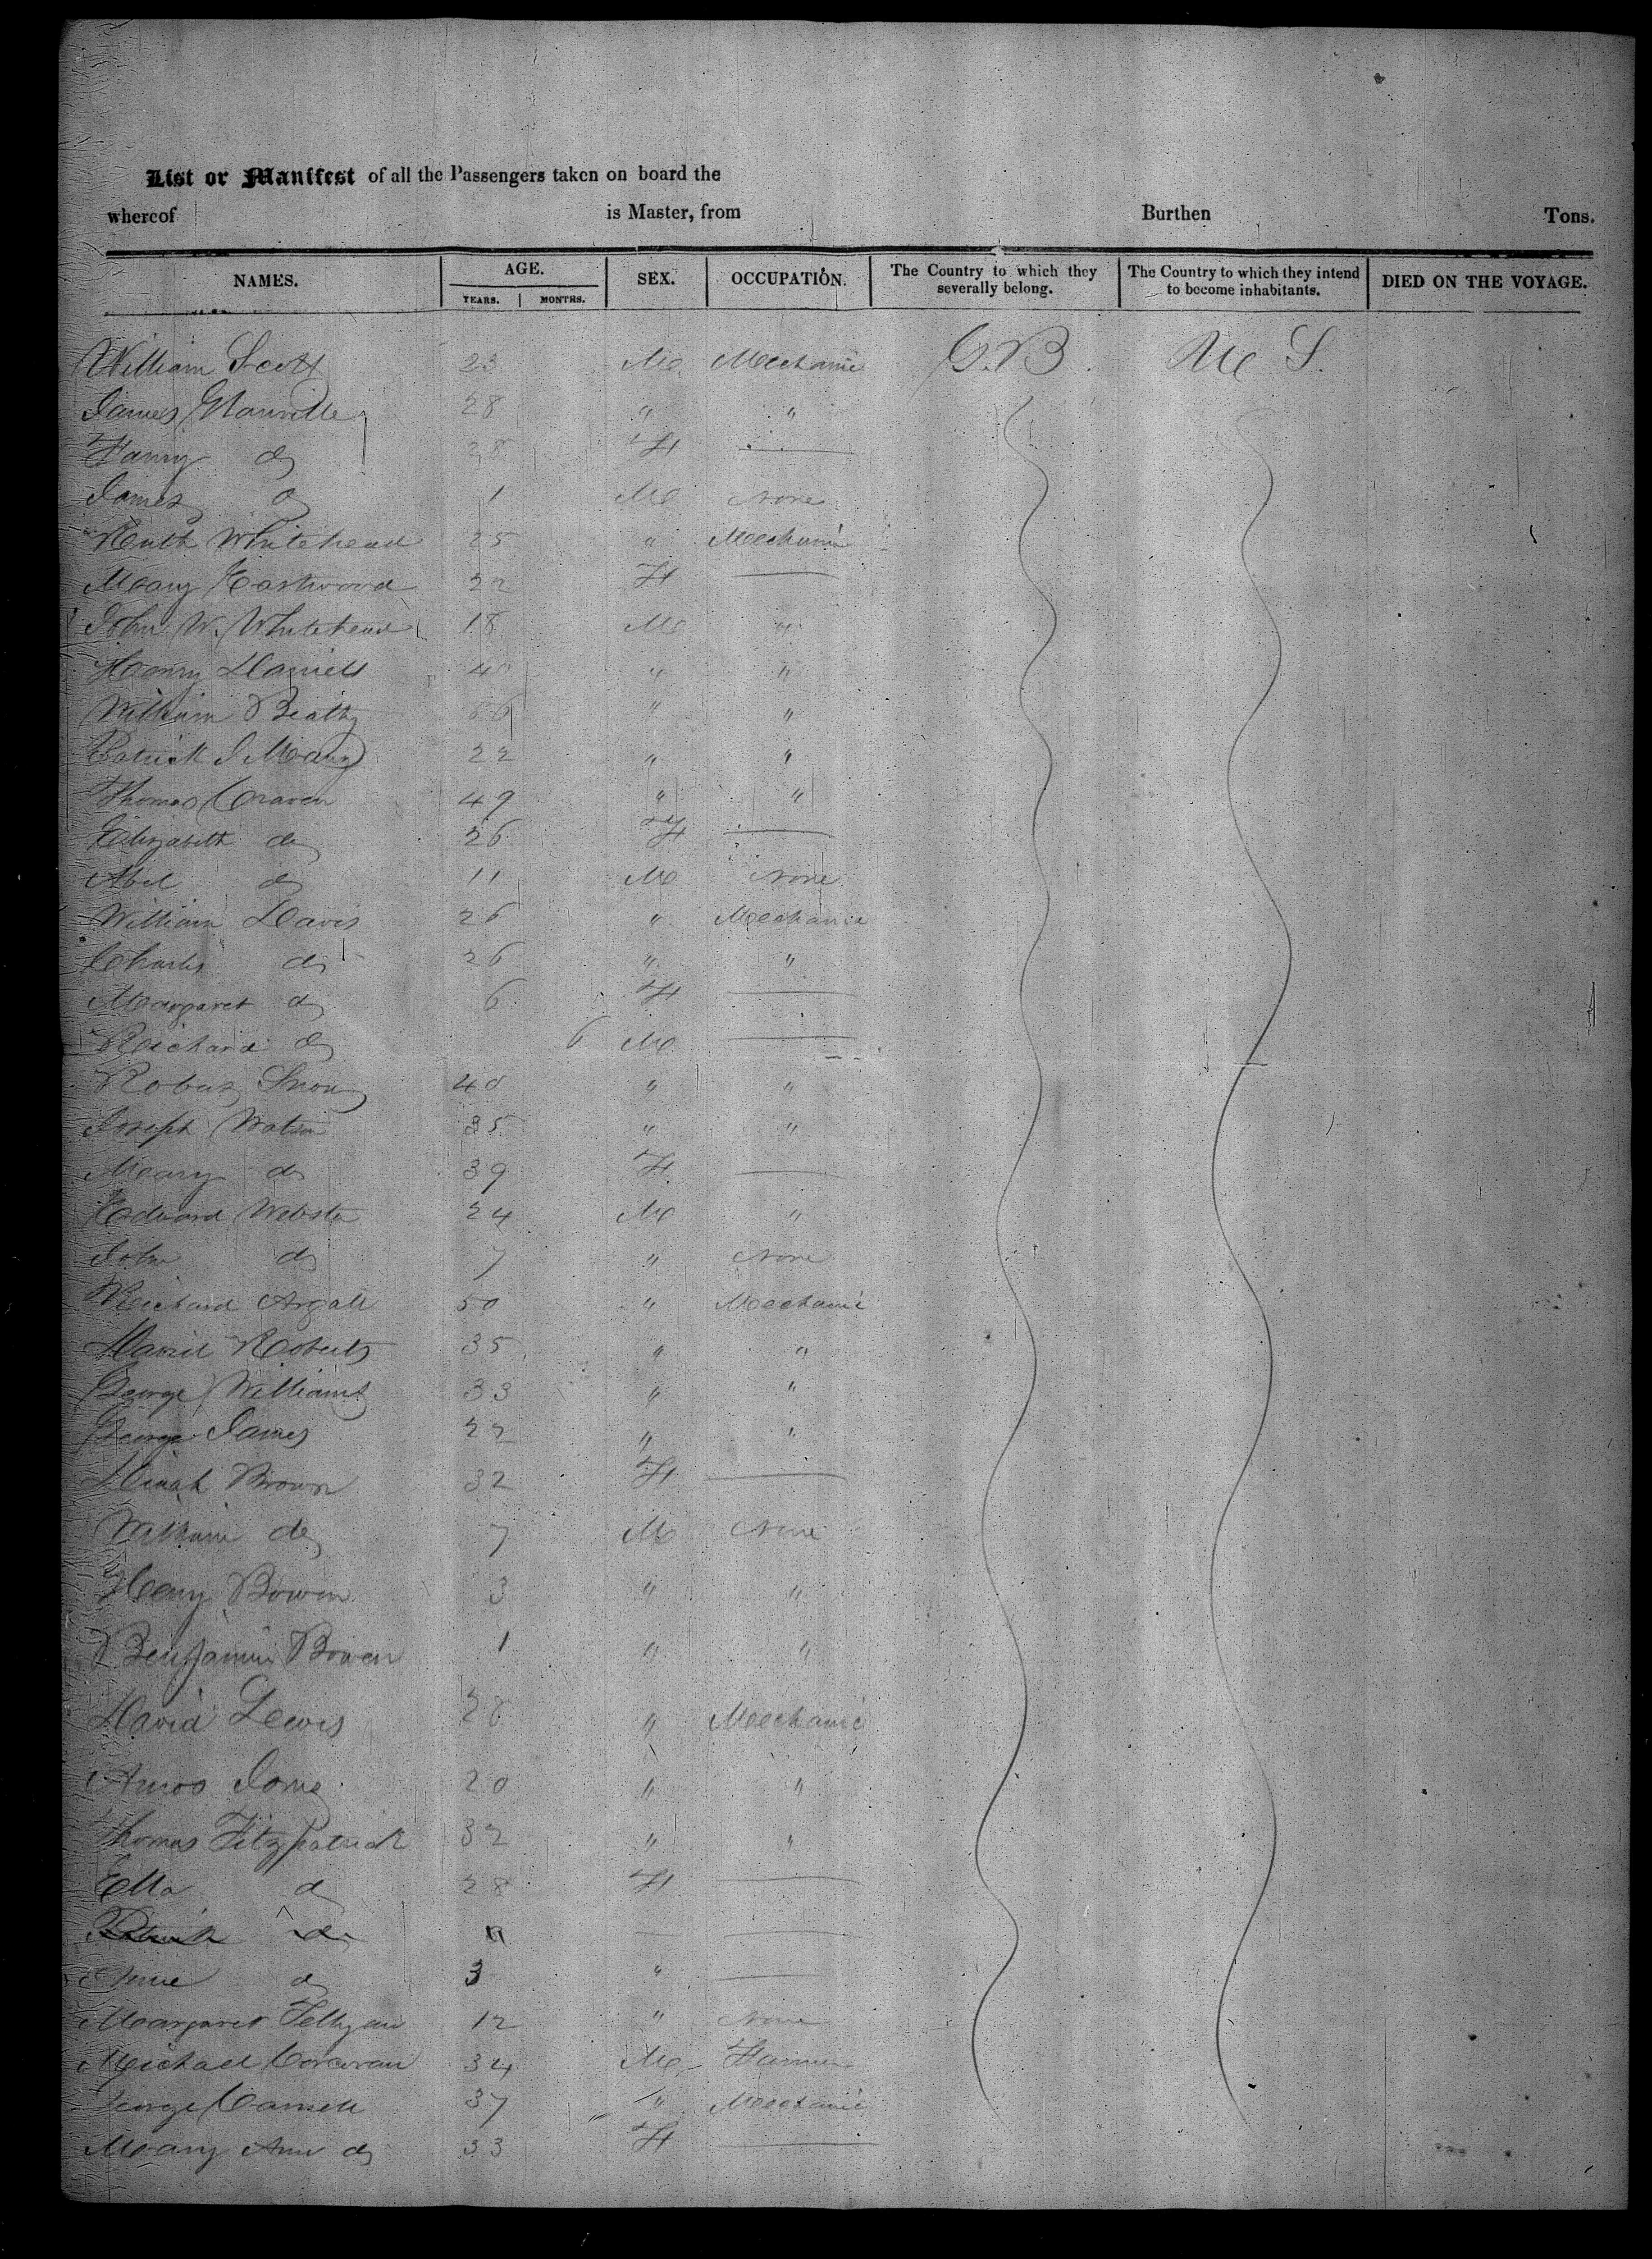 List or Manifest of all the Passengers taken on board the
whereof is Master, from Burthen Tons.
NAMES. AGE. SEX. OCCUPATION. The Country to which they severally belong. The Country to which they intend to become inhabitants. DIED ON THE VOYAGE.
YEARS. MONTHS.
William Scott 23 M Mechanic G.B. U S.
James Glanville 28 " "
Fanny do 28 F —
James do 1 M None
Ruth Whitehead 25 " Mechanic
Mary Eastwood 22 F —
John W. Whitehead 18 M "
Henry Daniels 40 " "
William Beatty " "
Patrick 22 " "
Thomas Craven 49 " "
Elizabeth do 26 F —
Abel do 11 M None
William Davis 26 " Mechanic
Charles do 26 " "
Margaret do 6 F —
Richard do 6 M —
Snow 40 " "
Joseph Watson 35 " "
Mary do 39 F —
Edward Webster 24 M "
John do 7 " None
Richard Argall 50 " Mechanic
David Roberts 35 " "
George Williams 33 " "
George James 22 " "
Dinah Brown 32 F —
William do 7 M None
Henry Bowen 3 " "
Benjamin Bowen 1 " "
David Lewis 28 " Mechanic
Amos Jones 20 " "
Thomas Fitzpatrick 32 " "
Ella do 28 F —
Patrick do — —
Anne do 3 " —
Margaret 12 " None
Michael Corcoran 34 M Farmer
George 37 " Mechanic
Mary Ann do 33 F —